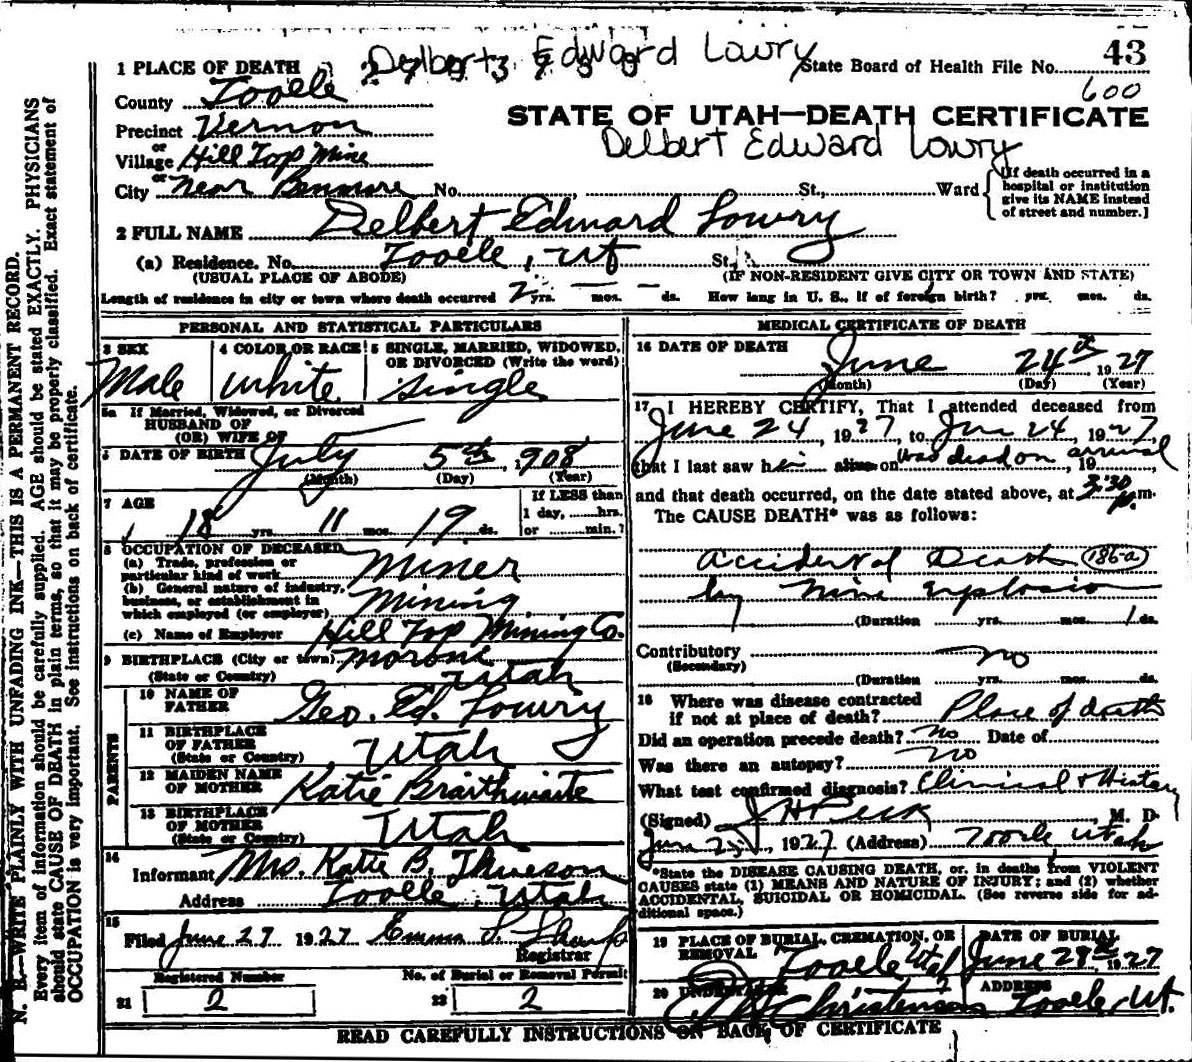 Delbert Edward Lowry
43
1 PLACE OF DEATH State Board of Health File No.
600
County Tooele
STATE OF UTAH—DEATH CERTIFICATE
Precinct Vernon
Delbert Edward Lowry
or
Village Hill Top Mine
or
City near Benmore No. St., Ward
[If death occurred in a
hospital or institution
give its NAME instead
of street and number.]
2 FULL NAME Delbert Edward Lowry
(a) Residence. No. Tooele, Ut St.
(USUAL PLACE OF ABODE) (IF NON-RESIDENT GIVE CITY OR TOWN AND STATE)
Length of residence in city or town where death occurred 2 yrs. — mos. — ds. How long in U. S., if of foreign birth? yrs. mos. ds.
PERSONAL AND STATISTICAL PARTICULARS
3 SEX 4 COLOR OR RACE 5 SINGLE, MARRIED, WIDOWED,
OR DIVORCED (Write the word)
Male White Single
5a If Married, Widowed, or Divorced
HUSBAND OF
(OR) WIFE OF
6 DATE OF BIRTH July 5th, 1908
(Month) (Day) (Year)
7 AGE If LESS than
1 day, hrs.
18 yrs. 11 mos. 19 ds. or min.?
8 OCCUPATION OF DECEASED
(a) Trade, profession or
particular kind of work Miner
(b) General nature of industry,
business, or establishment in
which employed (or employer) Mining
(c) Name of Employer Hill Top Mining Co.
9 BIRTHPLACE (City or town) Moroni
(State or Country) Utah
PARENTS
10 NAME OF
FATHER Geo. Ed. Lowry
11 BIRTHPLACE
OF FATHER
(State or Country) Utah
12 MAIDEN NAME
OF MOTHER Katie Braithwaite
13 BIRTHPLACE
OF MOTHER
(State or Country) Utah
14
Informant Mrs. Katie B.
Address Tooele, Utah
15
Filed June 27 1927 Emma S. Sharp
Registrar
Registered Number No. of Burial or Removal Permit
21 2 22 2
MEDICAL CERTIFICATE OF DEATH
16 DATE OF DEATH
June 24th 1927
(Month) (Day) (Year)
17 I HEREBY CERTIFY, That I attended deceased from
June 24, 1927, to June 24, 1927,
that I last saw him alive on was dead on arrival, 19
and that death occurred, on the date stated above, at 3:30 Pm.
The CAUSE DEATH* was as follows:
Accidental Death 186-a
by Mine Explosion
(Duration yrs. mos. 1 ds.
Contributory no
(Secondary)
(Duration yrs. mos. ds.
18 Where was disease contracted
if not at place of death? Place of death
Did an operation precede death? No Date of
Was there an autopsy? no
What test confirmed diagnosis? Clinical & History
(Signed) J H Peck M. D.
June 1927 (Address) Tooele Utah
*State the DISEASE CAUSING DEATH, or, in deaths from VIOLENT
CAUSES state (1) MEANS AND NATURE OF INJURY; and (2) whether
ACCIDENTAL, SUICIDAL OR HOMICIDAL. (See reverse side for ad-
ditional space.)
19 PLACE OF BURIAL, CREMATION, OR
REMOVAL Tooele Utah
DATE OF BURIAL
June 28th 1927
20 UNDERTAKER Christensen
ADDRESS
Tooele, Ut.
READ CAREFULLY INSTRUCTIONS ON BACK OF CERTIFICATE
N. B.—WRITE PLAINLY WITH UNFADING INK—THIS IS A PERMANENT RECORD.
Every item of information should be carefully supplied. AGE should be stated EXACTLY. PHYSICIANS
should state CAUSE OF DEATH in plain terms, so that it may be properly classified. Exact statement of
OCCUPATION is very important. See instructions on back of certificate.